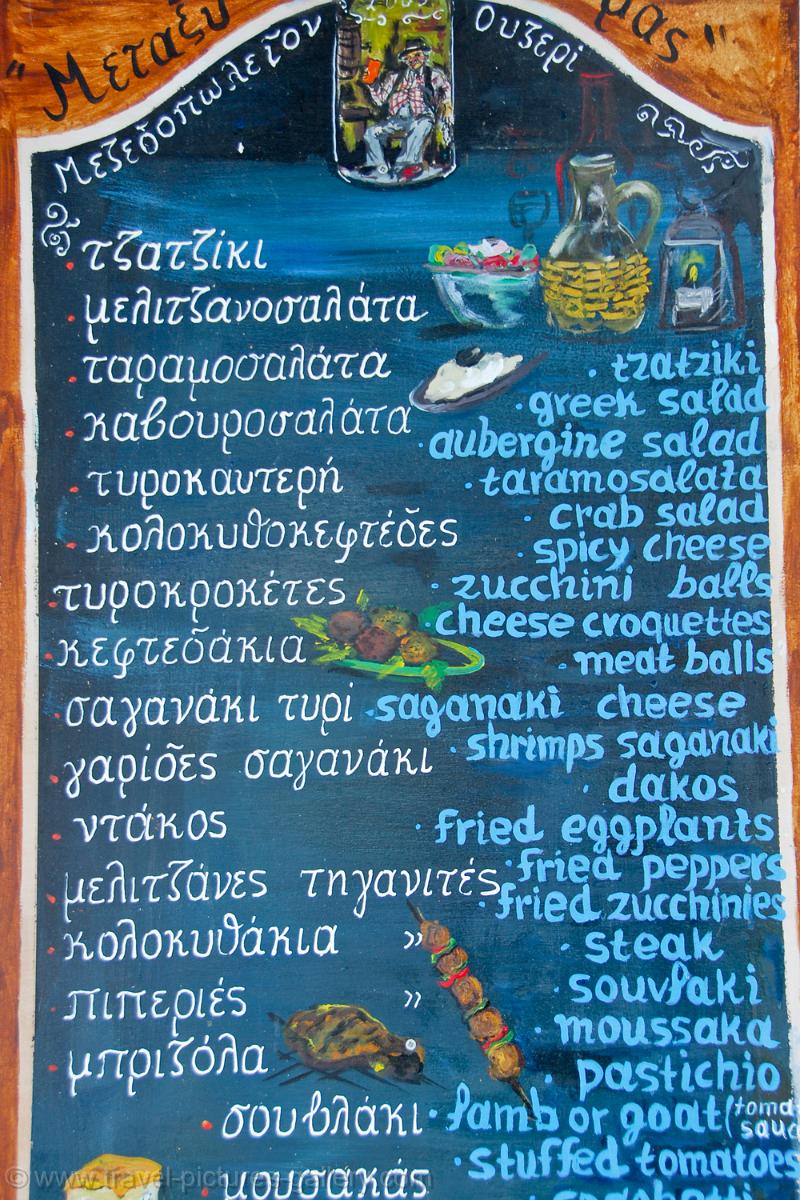 "Μεταξύ μας"
Μεζεδοπωλείον Ουζερί
τζατζίκι
μελιτζανοσαλάτα
ταραμοσαλάτα
καβουροσαλάτα
τυροκαυτερή
κολοκυθοκεφτέδες
τυροκροκέτες
κεφτεδάκια
σαγανάκι τυρί
γαρίδες σαγανάκι
ντάκος
μελιτζάνες τηγανιτές
κολοκυθάκια »
πιπεριές »
μπριζόλα
σουβλάκι
μουσάκάς
tzatziki
greek salad
aubergine salad
taramosalata
crab salad
spicy cheese
zucchini balls
cheese croquettes
meat balls
saganaki cheese
shrimps saganaki
dakos
fried eggplants
fried peppers
fried zucchinies
steak
souvlaki
moussaka
pastichio
lamb or goat (toma
sauc
stuffed tomatoes
© www.travel-pictures-gallery.com